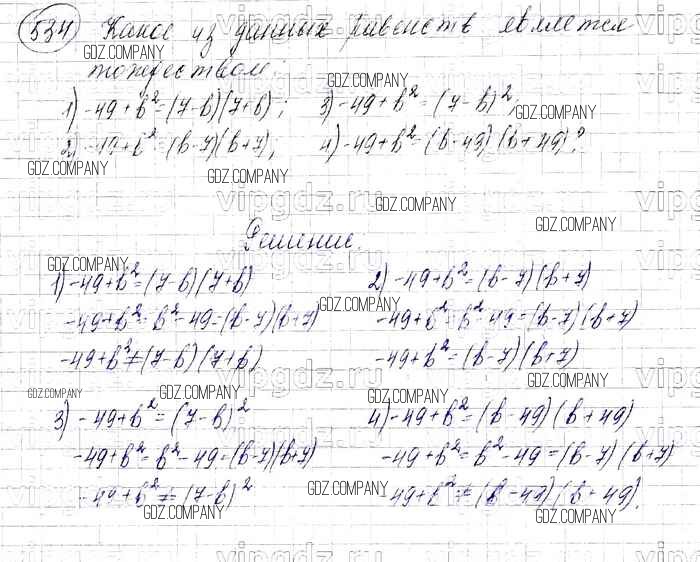 534 Какое из данных равенств является
тождеством:
1) -49+b²=(7-b)(7+b); 3) -49+b²=(7-b)²,
2) -49+b²=(b-7)(b+7); 4) -49+b²=(b-49)(b+49)?
Решение.
1) -49+b²=(7-b)(7+b)
-49+b²=b²-49=(b-7)(b+7)
-49+b²≠(7-b)(7+b)
2) -49+b²=(b-7)(b+7)
-49+b²=b²-49=(b-7)(b+7)
-49+b²=(b-7)(b+7)
3) -49+b²=(7-b)²
-49+b²=b²-49=(b-7)(b+7)
-49+b²≠(7-b)²
4) -49+b²=(b-49)(b+49)
-49+b²=b²-49=(b-7)(b+7)
-49+b²≠(b-49)(b+49).
GDZ.COMPANY
vipgdz.ru